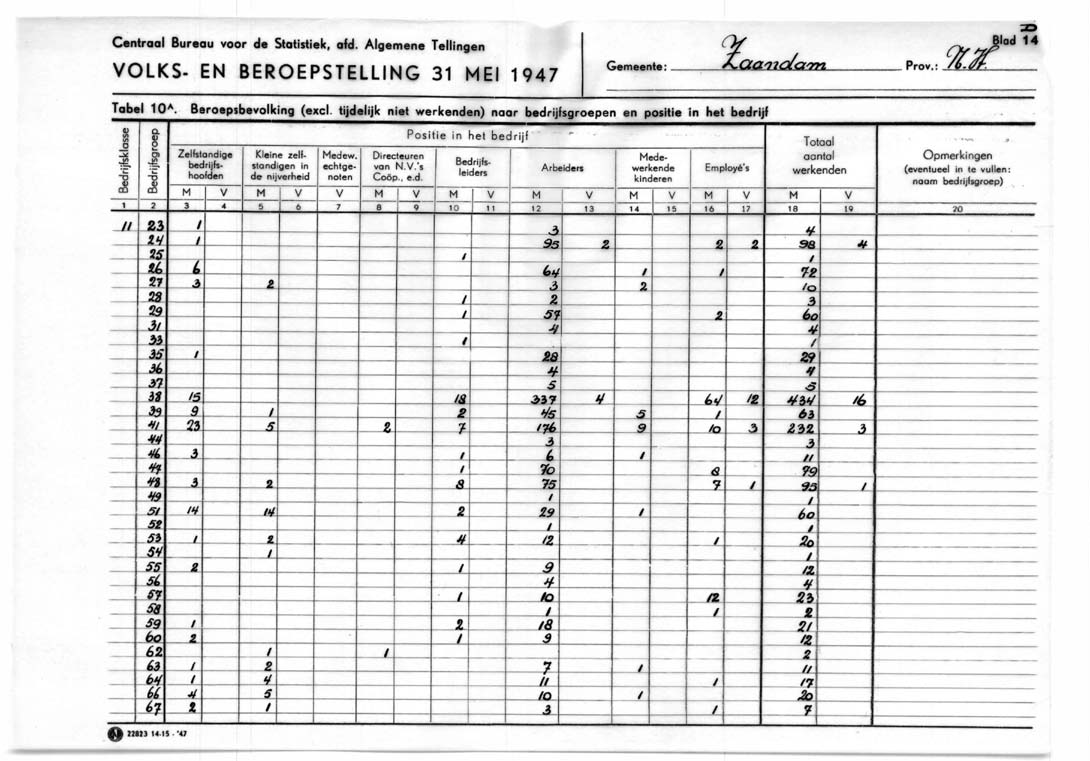 D
Centraal Bureau voor de Statistiek, afd. Algemene Tellingen
VOLKS- EN BEROEPSTELLING 31 MEI 1947
Gemeente: Zaandam Prov.: N.H. Blad 14
Tabel 10A. Beroepsbevolking (excl. tijdelijk niet werkenden) naar bedrijfsgroepen en positie in het bedrijf
Bedrijfsklasse
Bedrijfsgroep
Positie in het bedrijf
Zelfstandige bedrijfs- hoofden
Kleine zelf- standigen in de nijverheid
Medew. echtge- noten
Directeuren van N.V.'s Coöp., e.d.
Bedrijfs- leiders
Arbeiders
Mede- werkende kinderen
Employé's
Totaal aantal werkenden
Opmerkingen (eventueel in te vullen: naam bedrijfsgroep)
M V M V V M V M V M V M V M V M V
1 2 3 4 5 6 7 8 9 10 11 12 13 14 15 16 17 18 19 20
11 23 1 3 4
24 1 95 2 2 2 98 4
25 1 1
26 6 64 1 1 72
27 3 2 3 2 10
28 1 2 3
29 1 57 2 60
31 4 4
33 1 1
35 1 28 29
36 4 4
37 5 5
38 15 18 337 4 64 12 434 16
39 9 1 2 45 5 1 63
41 23 5 2 7 176 9 10 3 232 3
44 3 3
46 3 1 6 1 11
47 1 70 8 79
48 3 2 8 75 7 1 95 1
49 1 1
51 14 14 2 29 1 60
52 1 1
53 1 2 4 12 1 20
54 1 1
55 2 1 9 12
56 4 4
57 1 10 12 23
58 1 1 2
59 1 2 18 21
60 2 1 9 12
62 1 1 2
63 1 2 7 1 11
64 1 4 11 1 17
66 4 5 10 1 20
67 2 1 3 1 7
22823 14-15 - '47